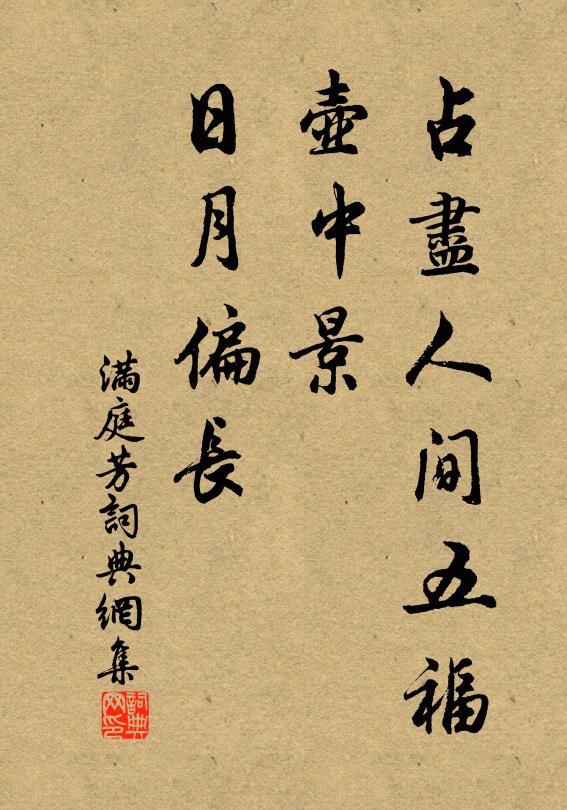 占盡人间五福
壺中景
日月偏長
满庭芳詞典網集
詞典
网印